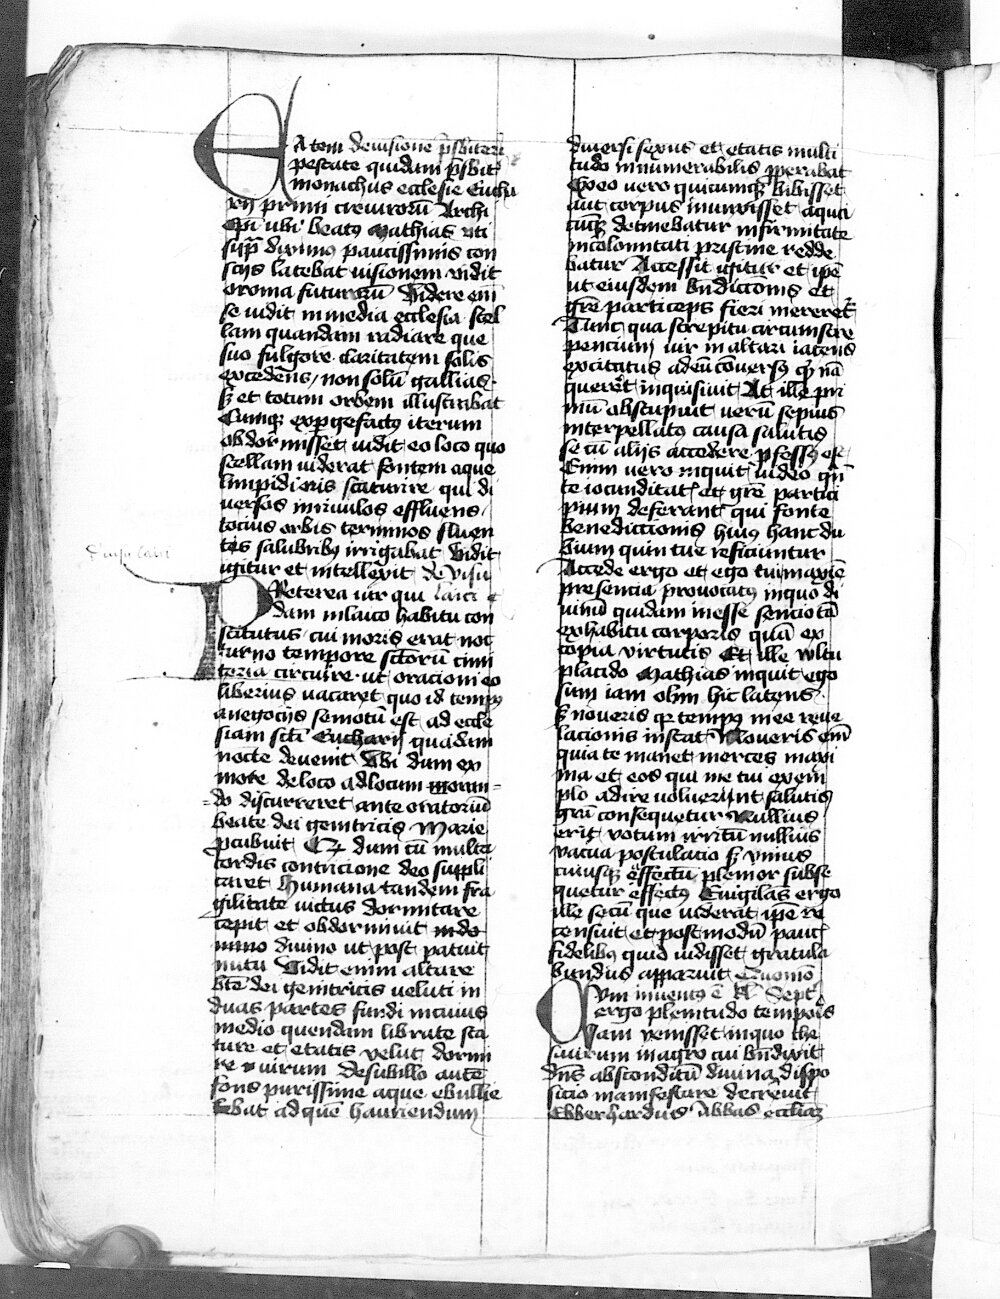 EA tem de visione presbiteri
pestate quidam presbiter
monachus ecclesie Eucha
rij primi treuirorum Archi
Epi ubi beatus Mathias uti
supra diximus paucissimis con
scijs latebat uisionem uidit
oroma futurorum Videre enim
se uidit in media ecclesia stel
lam quandam radiare que
suo fulgore claritatem solis
excedens non solum gallias
sed et totum orbem illustrabat
Cumque expergefactus iterum
obdormisset uidit eo loco quo
stellam uiderat fontem aque
limpidioris scaturire qui di
uersos in riuulos effluens
tocius orbis terminos fluen
tis salubribus irrigabat Vidit
igitur et intellexit de visu
singulari
Preterea uir qui laici
dam in laico habitu con
stitutus cui moris erat noc
turno tempore sanctorum cimi
teria circuire ut oracioni eo
liberius uacaret quo id tempus
a negocijs semotum est ad eccle
siam sancti Eucharij quadam
nocte deuenit Vbi dum ex
more de loco ad locum
do discurreret ante oratorium
beate dei genitricis Marie
procubuit Cumque dum cum multa
cordis contricione deo suppli
caret humana tandem fra
gilitate uictus dormitare
cepit et obdormiuit
divino ut post patuit
nutu Vidit enim altare
beate dei genitricis ueluti in
duas partes fundi in cuius
medio quendam librate sta
ture et etatis velut dormi
re uirum de sub illo autem
fons purissime aque ebullie
bat ad quem hauriendum
diuersi sexus et etatis multi
tudo innumerabilis properabat
Ex eo vero quicumque bibisset
aut corpus inunxisset a qua
cumque detinebatur infirmitate
incolomitati pristine redde
batur Accessit igitur et ipse
ut eiusdem benedictionis et
gratie particeps fieri mereretur
Tunc qua strepitu circumstre
pencium uir in altari iacens
excitatus ad eum conuersus quid nam
quereret inquisiuit At ille pri
mum obstupuit uerum sepius
interpellatus causa salutis
se cum alijs accedere professus est
Enim vero inquit uideo quod
te iocunditatis et gratie partici
pium deferant qui fonte
benedictionis huius hanc du
bium quin tue reficiuntur
Accede ergo et ego tui maxime
presencia prouocatus in quo di
uinum quidam inesse sencio tam
ex habitu corporis quam ex
copia virtutis Et ille vultu
placido Mathias inquit ego
sum iam olim hic latens
sed noueris quod tempus mee reue
lacionis instat Noueris enim
quia te manet merces maxi
ma et eos qui me tui exem
plo adire uoluerint salutis
gratiam consequetur Nullius
erit votum irritum nullius
vacua postulacio sed vnius
cuiusque effectum plenior subse
quetur effectus Euigilans ergo
ille secum que uiderat ipse re
censuit et postmodum paucis
fidelibus quid uidisset gratula
bundus apparuit Quomodo
Cvm inuentus est kl Septembris
ergo plenitudo temporis
iam venisset in quo the
saurum in agro cui benedixit
dominus absconditum diuina dispo
sicio manifestare decreuit
Ebberhardus Abbas ecclesie